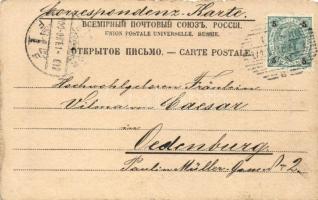 Correspondenz-Karte
ВСЕМІРНЫЙ ПОЧТОВЫЙ СОЮЗЪ. РОССІЯ.
UNION POSTALE UNIVERSELLE. RUSSIE.
ОТКРЫТОЕ ПИСЬМО. — CARTE POSTALE.
Hochwohlgeboren Fräulein
Vilma von Caesar
in
Oedenburg
Paulin Müller-Gasse 2